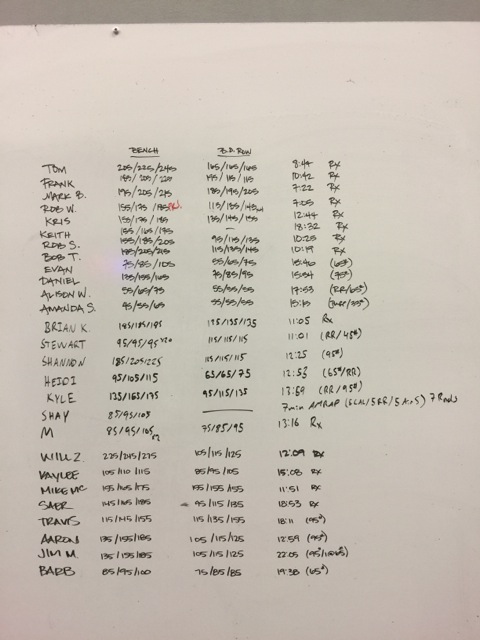 BENCH B.B. ROW
TOM 205/225/245 165/165/165 8:44 Rx
FRANK 185/205/225 115/115 10:42 Rx
MARK B. 195/205/215 185/195/205 7:22 Rx
ROB W. 155/175/185 115/135/145 7:05 Rx
KRIS 155/175/185 135/145/155 12:44 Rx
KEITH 155/165/175 — 18:32 Rx
ROB S. 155/185/205 95/115/135 10:25 Rx
BOB T. 185/205/215 115/135/145 10:19 Rx
EVAN 75/85/105 55/65/75 15:46 (65#)
DANIEL 135/155/165 75/85/95 15:54 (75#)
ALISON W. 55/65/75 55/55/55 17:53 (RR/65#)
AMANDA S. 45/55/65 55/55/55 (RR/35#)
BRIAN K. 185/185/195 125/135/135 11:05 Rx
STEWART 95/95/95 115/115/115 11:01 (RR/45#)
SHANNON 185/205/225 115/115/115 12:25 (95#)
HEIDI 95/105/115 65/65/75 12:53 (65#/RR)
KYLE 135/165/175 95/115/135 13:59 (RR/95#)
SHAY 85/95/105 — 7min AMRAP 7 Rnds
M 85/95/105 75/85/95 13:16 Rx
WILL Z. 225/245/275 105/115/125 12:09 Rx
KAYLEE 105/110/115 85/95/105 15:08 Rx
MIKE MC 155/165/175 155/155/155 11:51 Rx
SAER 145/165/185 95/115/135 18:53 Rx
TRAVIS 115/145/155 115/135/155 18:11 (95#)
AARON 135/155/185 105/115/125 12:59 (95#)
JIM M. 135/155/185 105/115/125 22:05
BARB 85/95/100 75/85/85 19:38 (65#)